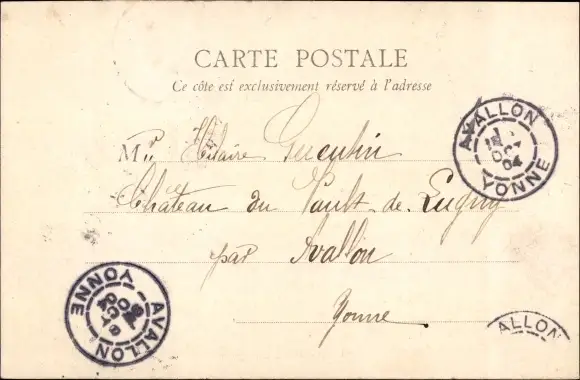 CARTE POSTALE
Ce côte est exclusivement réservé à l'adresse
Mlle Hilaire
Château du Vault-de-Lugny
par Avallon
Yonne
AVALLON
OCT
04
YONNE
AVALLON
YONNE
ALLON